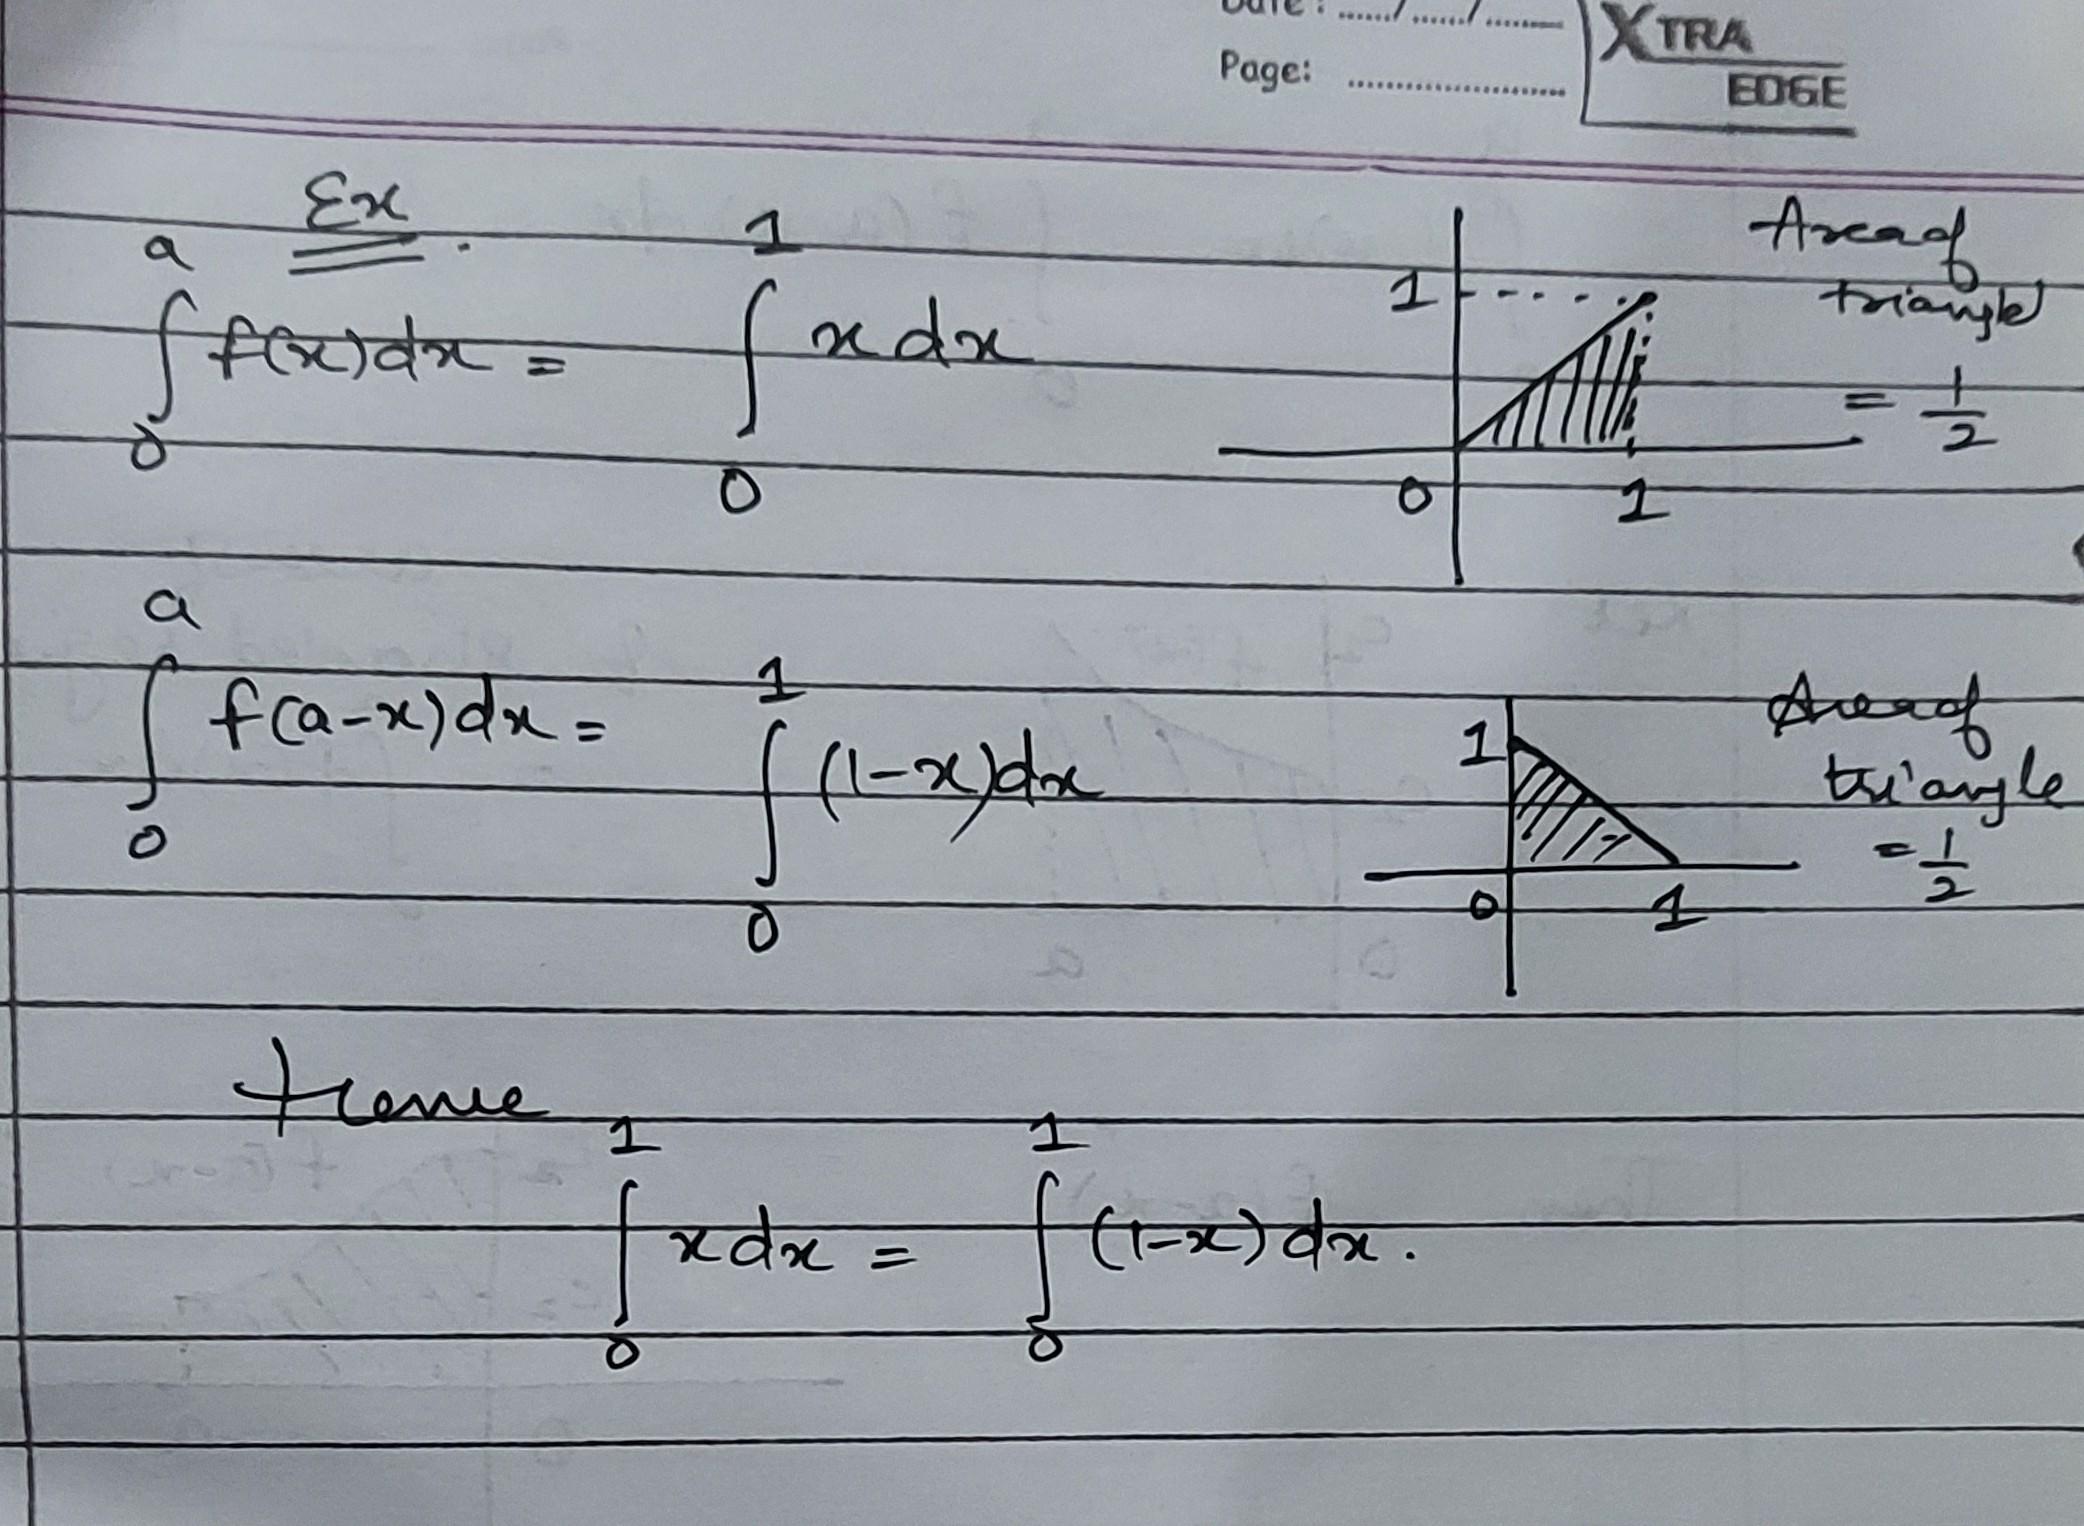 Date: ....../....../.........
Page: ........................
XTRA
EDGE
Ex.
∫₀ᵃ f(x)dx = ∫₀¹ x dx
1
0
1
Area of
triangle
= 1/2
∫₀ᵃ f(a-x)dx = ∫₀¹ (1-x)dx
1
0
1
Area of
triangle
= 1/2
Hence
∫₀¹ x dx = ∫₀¹ (1-x) dx.